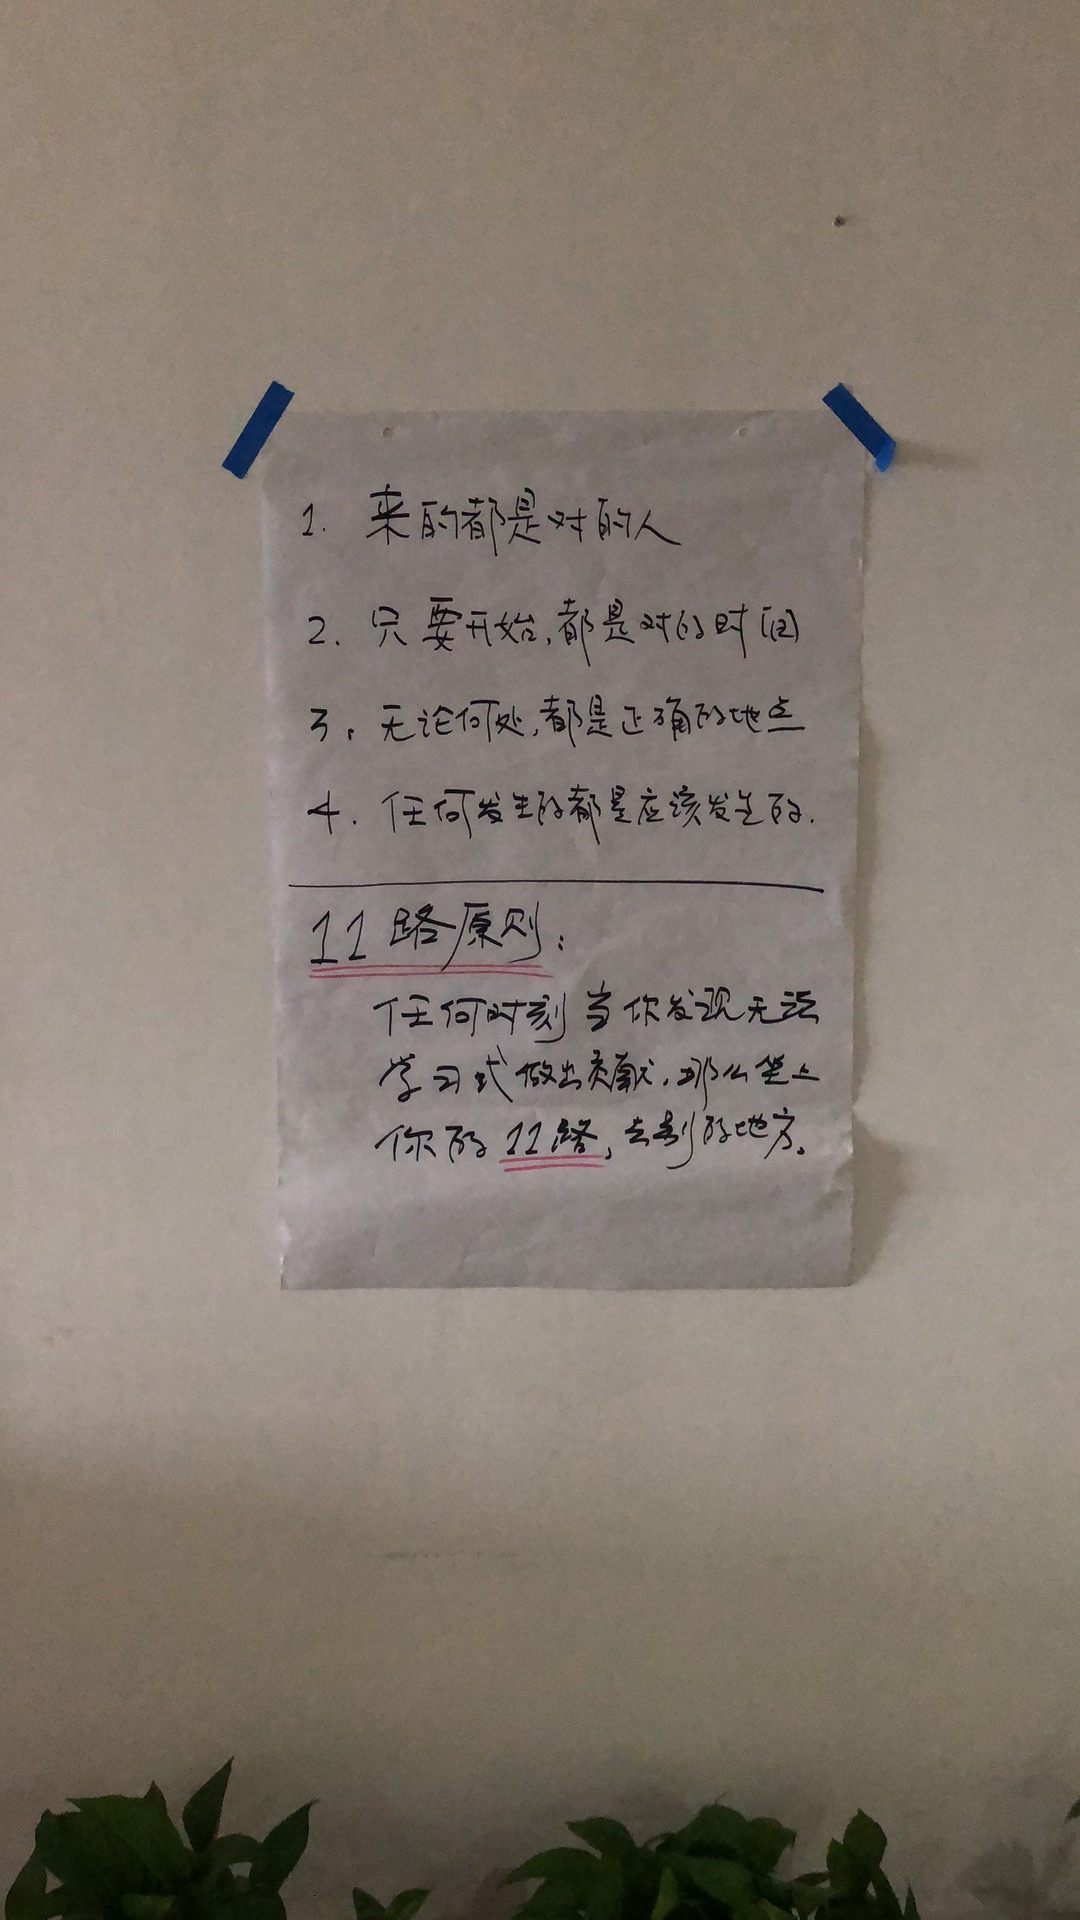 1. 来的都是对的人
2. 只要开始,都是对的时间
3. 无论何处,都是正确的地点
4. 任何发生的都是应该发生的.
11路原则:
任何时刻当你发现无法
学习式做出贡献,那么坐上
你的11路,去别的地方。